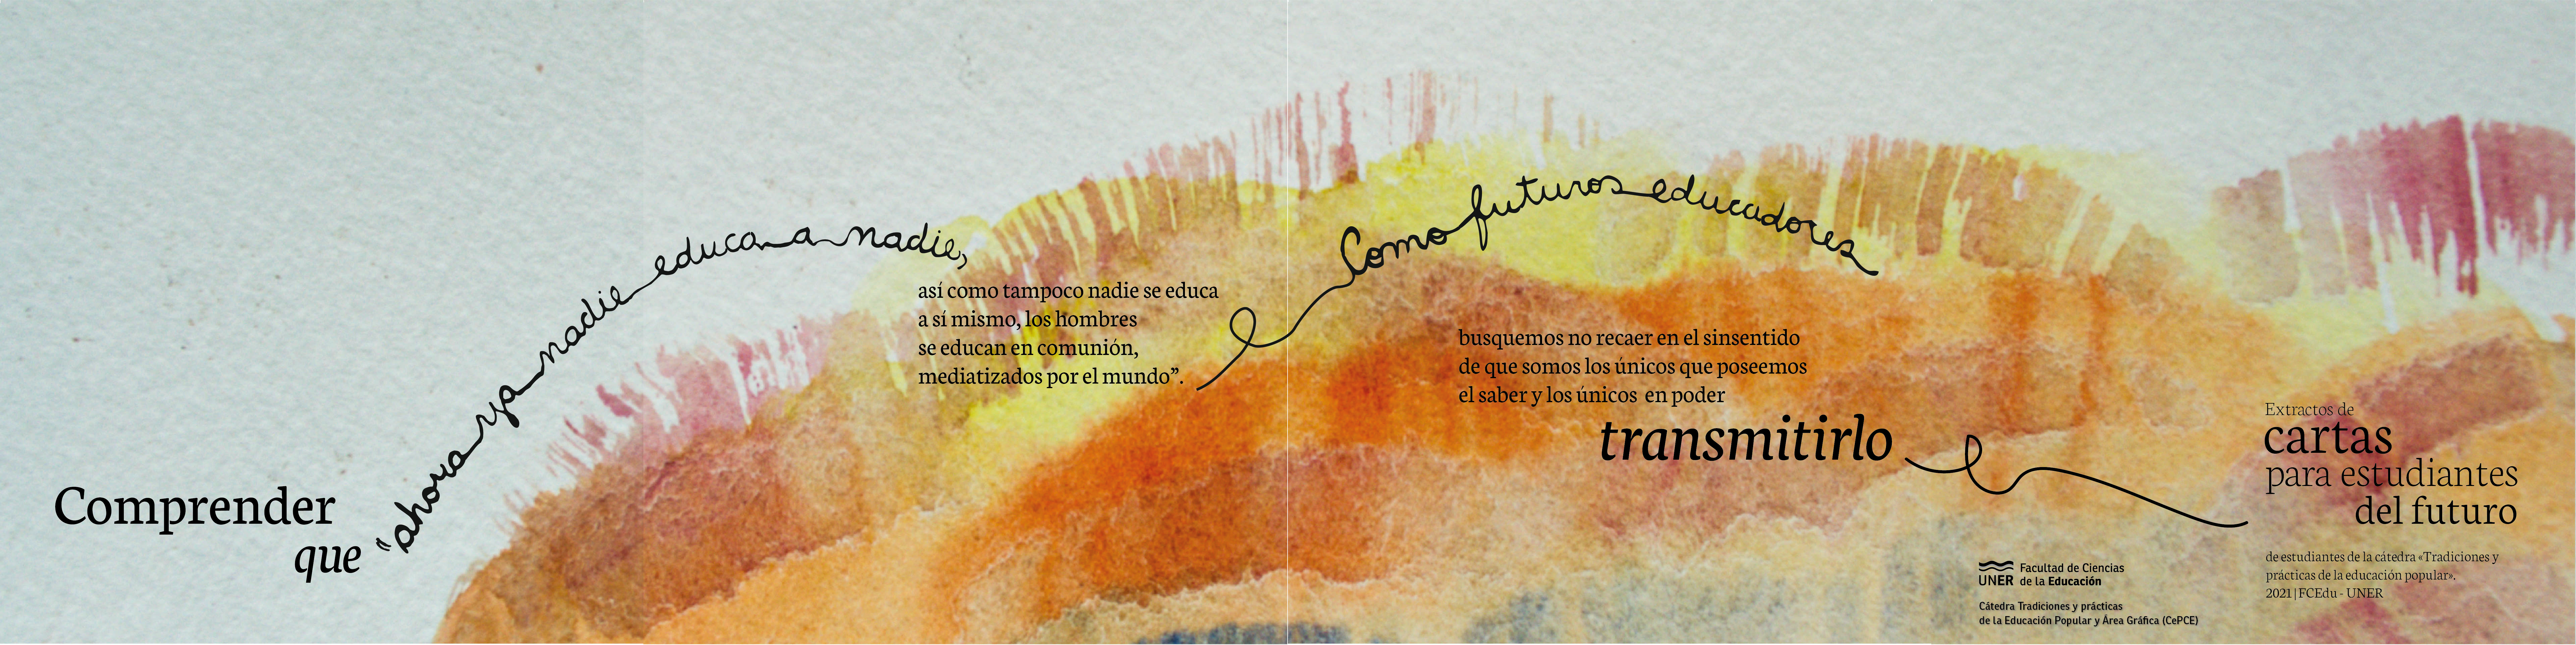 Comprender
que
“ahora ya nadie educa a nadie,
así como tampoco nadie se educa
a sí mismo, los hombres
se educan en comunión,
mediatizados por el mundo”.
Como futuros educadores
busquemos no recaer en el sinsentido
de que somos los únicos que poseemos
el saber y los únicos en poder
transmitirlo
Extractos de
cartas
para estudiantes
del futuro
de estudiantes de la cátedra «Tradiciones y
prácticas de la educación popular».
2021 | FCEdu - UNER
UNER
Facultad de Ciencias
de la Educación
Cátedra Tradiciones y prácticas
de la Educación Popular y Área Gráfica (CePCE)